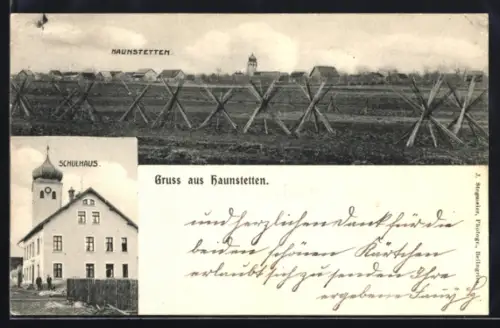 HAUNSTETTEN.
SCHULHAUS.
Gruss aus Haunstetten.
und herzlichen Dank für die
beiden schönen Kärtchen
erlaubt sich zu senden Ihre
ergebene Fanny
J. Stegmeier, Photogr.,